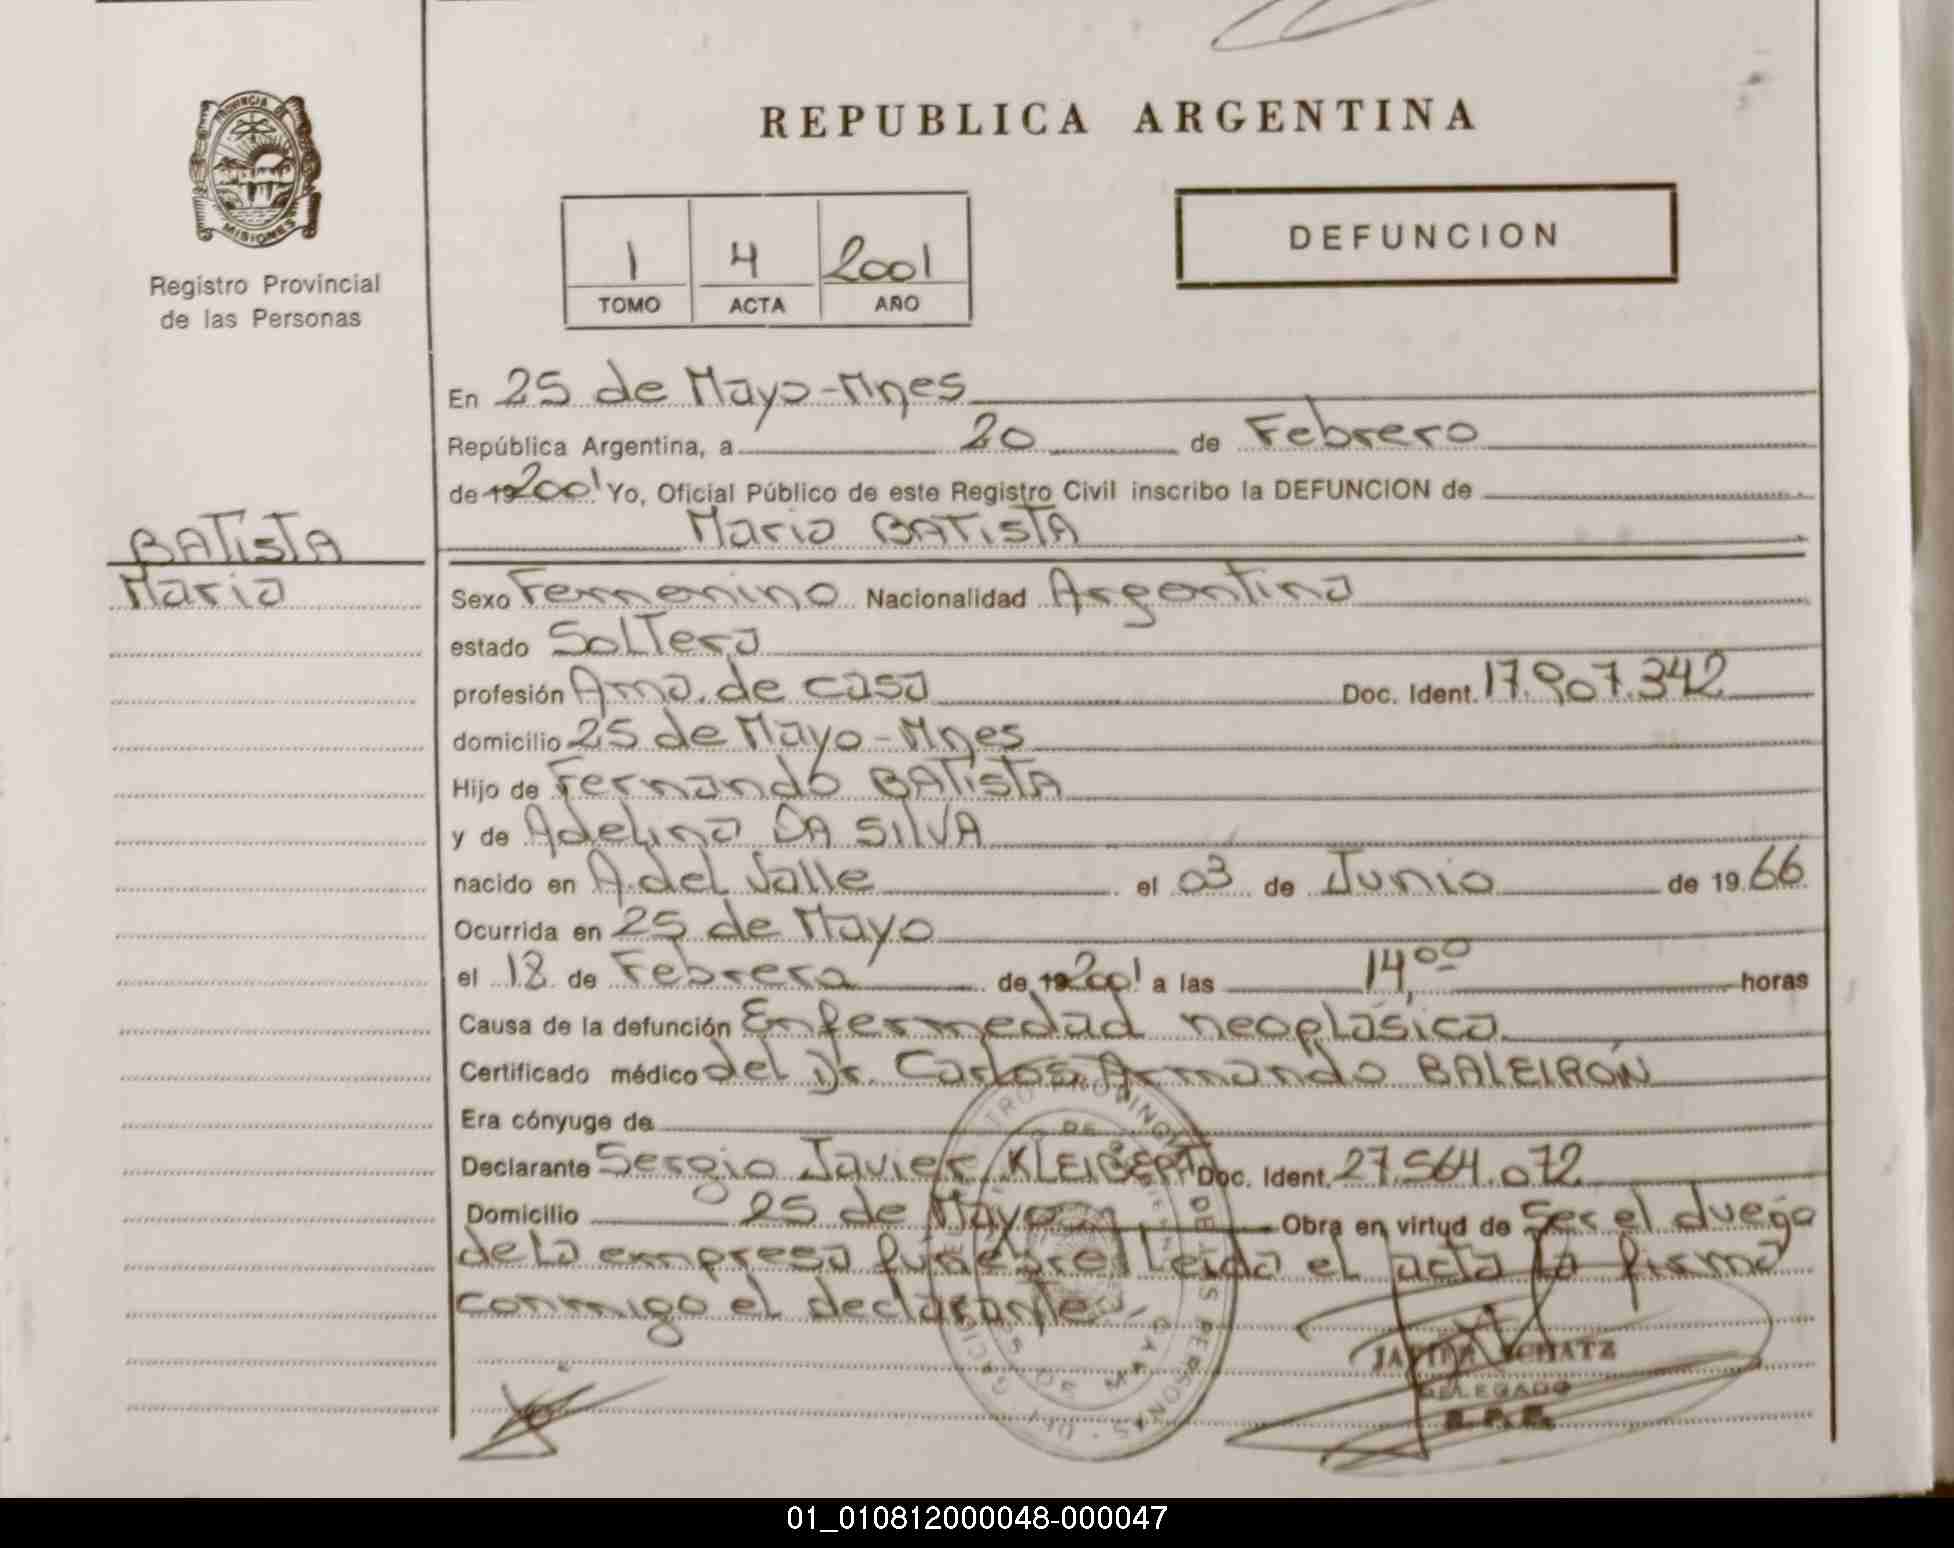 REPUBLICA ARGENTINA
PROVINCIA DE
MISIONES
Registro Provincial
de las Personas
1 4 2001
TOMO ACTA AÑO
DEFUNCION
En 25 de Mayo-Mnes
República Argentina, a 20 de Febrero
de 19 2001 Yo, Oficial Público de este Registro Civil inscribo la DEFUNCION de
Maria BATISTA
BATISTA
Maria
Sexo Femenino Nacionalidad Argentina
estado Soltera
profesión Ama de casa Doc. Ident. 17.907.342
domicilio 25 de Mayo-Mnes
Hijo de Fernando BATISTA
y de Adelina DA SILVA
nacido en A. del Valle el 03 de Junio de 19 66
Ocurrida en 25 de Mayo
el 18 de Febrero de 19 2001 a las 14,00 horas
Causa de la defunción Enfermedad neoplásica
Certificado médico del Dr. Carlos Armando BALEIRÓN
Era cónyuge de
Declarante Sergio Javier KLEIBERT Doc. Ident. 27.564.072
Domicilio 25 de Mayo Obra en virtud de Ser el dueño
de la empresa fúnebre leida el acta la firma
conmigo el declarante
JAVIER SCHATZ
DELEGADO
01_010812000048-000047